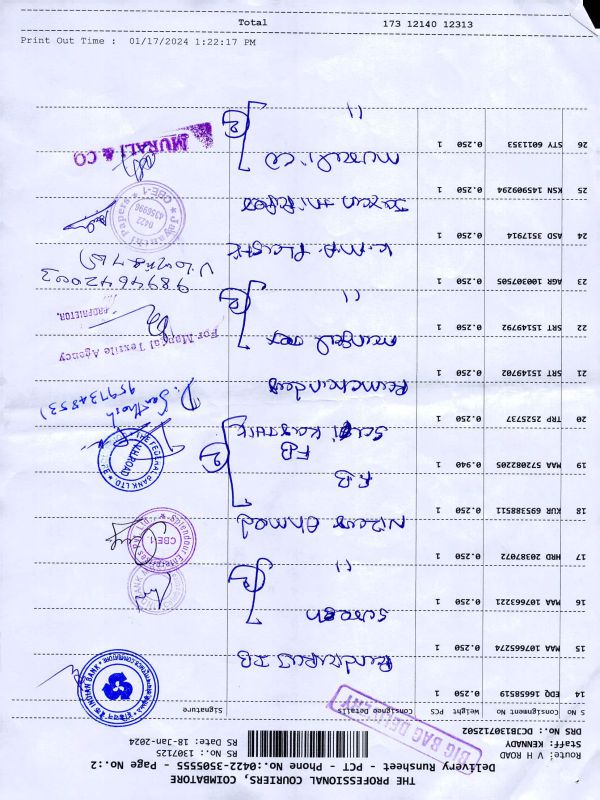 THE PROFESSIONAL COURIERS, COIMBATORE
Delivery Runsheet - PCT - Phone No.:0422-3505555 - Page No.:2
Route: R V H ROAD
Staff: KENNADY
DRS No.: DCB130712502
RS No.: 1307125
RS Date: 18-Jan-2024
BIG BAG DELIVERY
S No Consignment No Weight PCS Consignee Details Signature
14 EDQ 16658519 0.250 1
INDIAN BANK
15 MAA 107665274 0.250 1
16 MAA 107663221 0.250 1 "
17 HRD 20387072 0.250 1
Splendour Enterprises Pvt Ltd.
CBE-1
18 KUR 695388511 0.250 1 F.B
19 MAA 572082205 0.940 1 FB
THE FEDERAL BANK LTD.
V.H.ROAD
20 TRP 2525737 0.250 1
D. Santhosh
21 SRT 15149702 0.250 1
For Mangal Textile Agency
PROPRIETOR.
22 SRT 15149792 0.250 1 "
23 AGR 100307505 0.250 1 K.M.A. Plastic
9894642003
24 ASD 3517914 0.250 1
Jayanthi Papers
0422
4396996
CBE-1
25 KSN 145909294 0.250 1 Murali & Co
26 STY 6011353 0.250 1 "
MURALI & CO
Total 173 12140 12313
Print Out Time : 01/17/2024 1:22:17 PM